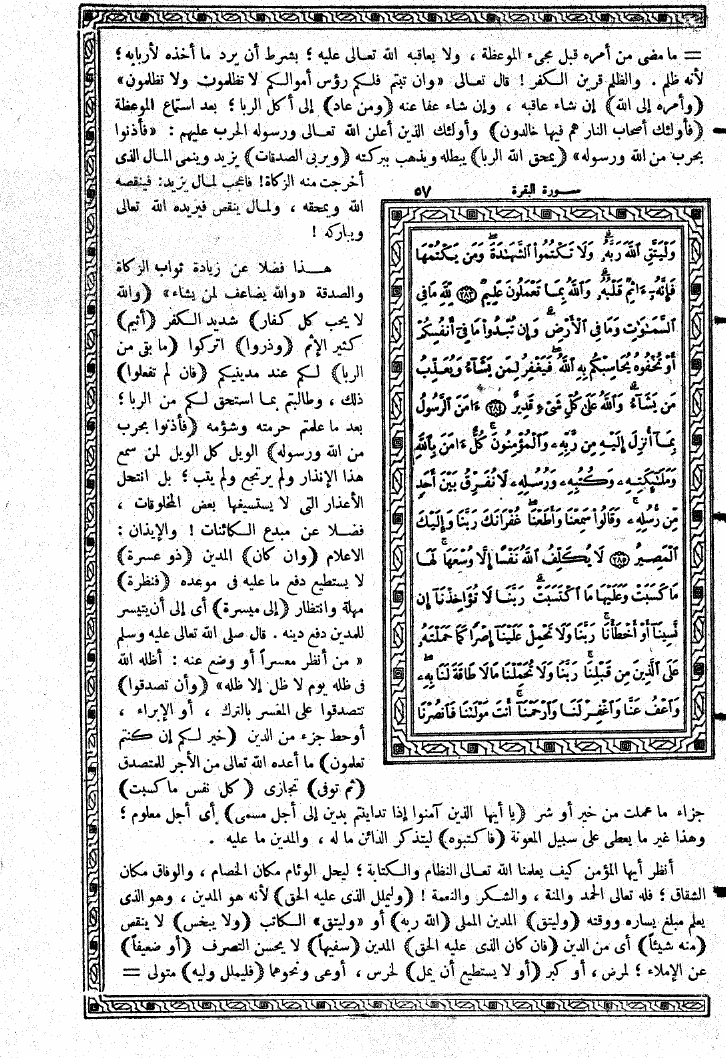 = ما مضى من أمره قبل مجىء الموعظة ، ولا يعاقبه الله تعالى عليه ؛ بشرط أن يرد ما أخذه لأربابه ؛
لأنه ظلم . والظلم قرين الكفر ! قال تعالى «وان تبتم فلكم رؤس أموالكم لا تظلمون ولا تظلمون»
(وأمره إلى الله) إن شاء عاقبه ، وإن شاء عفا عنه (ومن عاد) إلى أكل الربا ؛ بعد استماع الموعظة
(فأولئك أصحاب النار هم فيها خالدون) وأولئك الذين أعلن الله تعالى ورسوله الحرب عليهم : «فأذنوا
بحرب من الله ورسوله» (يمحق الله الربا) يبطله ويذهب ببركته (ويربى الصدقات) يزيد وينمى المال الذى
أخرجت منه الزكاة! فاعجب لمال يزيد: فينقصه
الله ويمحقه ، ولمال ينقص فيزيده الله تعالى
ويباركه !
هذا فضلا عن زيادة ثواب الزكاة
والصدقة «والله يضاعف لمن يشاء» (والله
لا يحب كل كفار) شديد الكفر (أثيم)
كثير الإثم (وذروا) اتركوا (ما بقى من
الربا) لكم عند مدينيكم (فان لم تفعلوا)
ذلك ، وطالبتم بما استحق لكم من الربا ؛
بعد ما علمتم حرمته وشؤمه (فأذنوا بحرب
من الله ورسوله) الويل كل الويل لمن سمع
هذا الإنذار ولم يرتجع ولم يتب ؛ بل انتحل
الأعذار التى لا يستسيغها بعض المخلوقات ،
فضلا عن مبدع الكائنات ! والإيذان :
الاعلام (وان كان) المدين (ذو عسرة)
لا يستطيع دفع ما عليه فى موعده (فنظرة)
مهلة وانتظار (إلى ميسرة) أى إلى أن يتيسر
للمدين دفع دينه . قال صلى الله تعالى عليه وسلم
« من أنظر معسراً أو وضع عنه : أظله الله
فى ظله يوم لا ظل إلا ظله» (وأن تصدقوا)
تتصدقوا على المعسر بالترك ، أو الإبراء ،
أو حط جزء من الدين (خير لكم إن كنتم
تعلمون) ما أعده الله تعالى من الأجر للمتصدق
(ثم توفى) تجازى (كل نفس ما كسبت)
سورة البقرة ٥٧
وَلْيَتَّقِ اللَّهَ رَبَّهُ وَلَا تَكْتُمُوا الشَّهَادَةَ وَمَن يَكْتُمْهَا
فَإِنَّهُ ءَاثِمٌ قَلْبُهُ وَاللَّهُ بِمَا تَعْمَلُونَ عَلِيمٌ ﴿٢٨٣﴾ لِلَّهِ مَا فِى
السَّمَاوَاتِ وَمَا فِى الْأَرْضِ وَإِن تُبْدُوا مَا فِى أَنفُسِكُمْ
أَوْ تُخْفُوهُ يُحَاسِبْكُم بِهِ اللَّهُ فَيَغْفِرُ لِمَن يَشَآءُ وَيُعَذِّبُ
مَن يَشَآءُ وَاللَّهُ عَلَىٰ كُلِّ شَىْءٍ قَدِيرٌ ﴿٢٨٤﴾ ءَامَنَ الرَّسُولُ
بِمَآ أُنزِلَ إِلَيْهِ مِن رَّبِّهِ وَالْمُؤْمِنُونَ كُلٌّ ءَامَنَ بِاللَّهِ
وَمَلَٰئِكَتِهِ وَكُتُبِهِ وَرُسُلِهِ لَا نُفَرِّقُ بَيْنَ أَحَدٍ
مِّن رُّسُلِهِ وَقَالُوا سَمِعْنَا وَأَطَعْنَا غُفْرَانَكَ رَبَّنَا وَإِلَيْكَ
الْمَصِيرُ ﴿٢٨٥﴾ لَا يُكَلِّفُ اللَّهُ نَفْسًا إِلَّا وُسْعَهَا لَهَا
مَا كَسَبَتْ وَعَلَيْهَا مَا اكْتَسَبَتْ رَبَّنَا لَا تُؤَاخِذْنَآ إِن
نَّسِينَآ أَوْ أَخْطَأْنَا رَبَّنَا وَلَا تَحْمِلْ عَلَيْنَآ إِصْرًا كَمَا حَمَلْتَهُ
عَلَى الَّذِينَ مِن قَبْلِنَا رَبَّنَا وَلَا تُحَمِّلْنَا مَا لَا طَاقَةَ لَنَا بِهِ
وَاعْفُ عَنَّا وَاغْفِرْ لَنَا وَارْحَمْنَآ أَنتَ مَوْلَىٰنَا فَانصُرْنَا
جزاء ما عملت من خير أو شر (يا أيها الذين آمنوا إذا تداينتم بدين إلى أجل مسمى) أى أجل معلوم ؛
وهذا غير ما يعطى على سبيل المعونة (فاكتبوه) ليتذكر الدائن ما له ، والمدين ما عليه .
أنظر أيها المؤمن كيف يعلمنا الله تعالى النظام والكتابة ؛ ليحل الوئام مكان الخصام ، والوفاق مكان
الشقاق ؛ فله تعالى الحمد والمنة ، والشكر والنعمة ! (وليملل الذى عليه الحق) لأنه هو المدين ، وهو الذى
يعلم مبلغ يساره ووقته (وليتق) المدين المملى (الله ربه) أو «وليتق» الكاتب (ولا يبخس) لا ينقص
(منه شيئاً) أى من الدين (فان كان الذى عليه الحق) المدين (سفيهاً) لا يحسن التصرف (أو ضعيفاً)
عن الإملاء ؛ لمرض ، أو كبر (أو لا يستطيع أن يمل) لخرس ، أو عى ونحوهما (فليملل وليه) متولى =